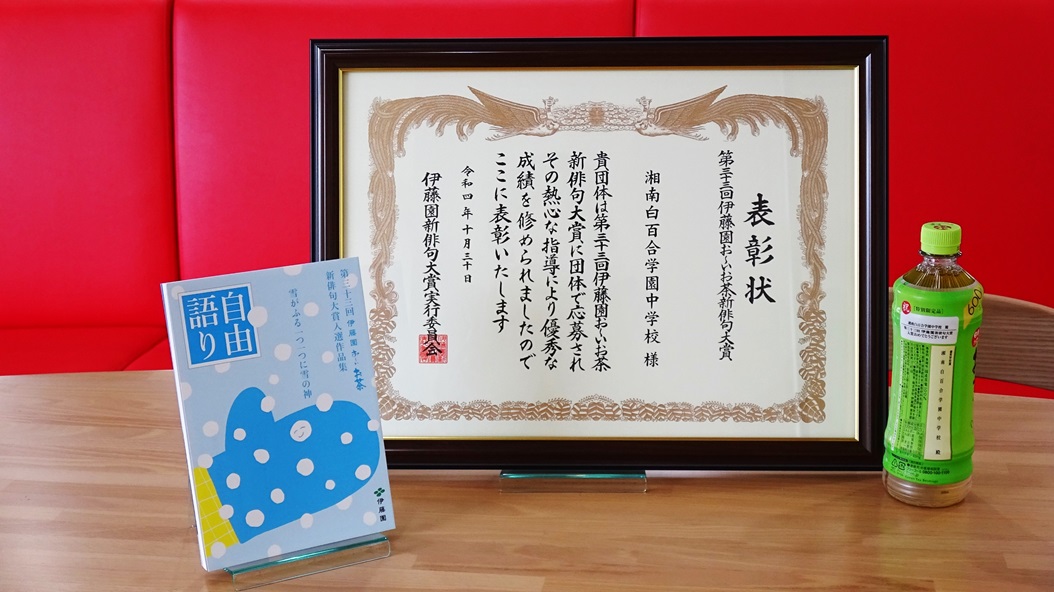 表彰状
第三十三回伊藤園お~いお茶新俳句大賞
湘南白百合学園中学校 様
貴団体は第三十三回伊藤園お~いお茶
新俳句大賞に団体で応募され
その熱心な指導により優秀な
成績を修められましたので
ここに表彰いたします
令和四年十月三十日
伊藤園新俳句大賞実行委員会
自由
語り
第三十三回 伊藤園 お~いお茶
新俳句大賞入選作品集
雪がふる一つ一つに雪の神
伊藤園
祝
湘南白百合学園中学校 様